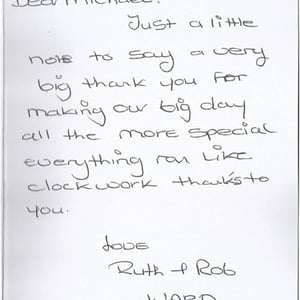 Dear Michael.
Just a little
note to say a very
big thank you for
making our big day
all the more special
everything ran like
clockwork thanks to
you.
love
Ruth + Rob
WARD